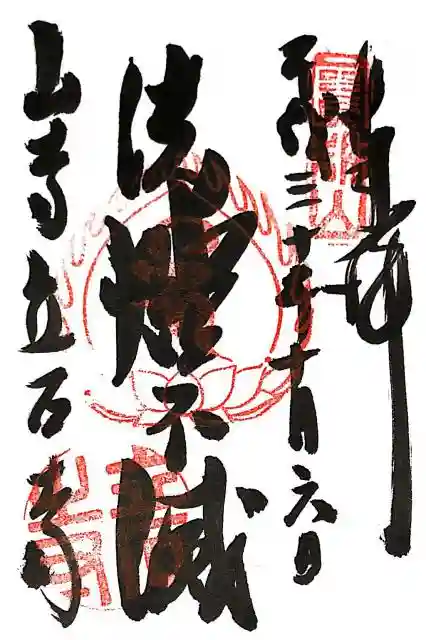 奉拝
平成三十年十月六日
法燈不滅
山寺立石寺